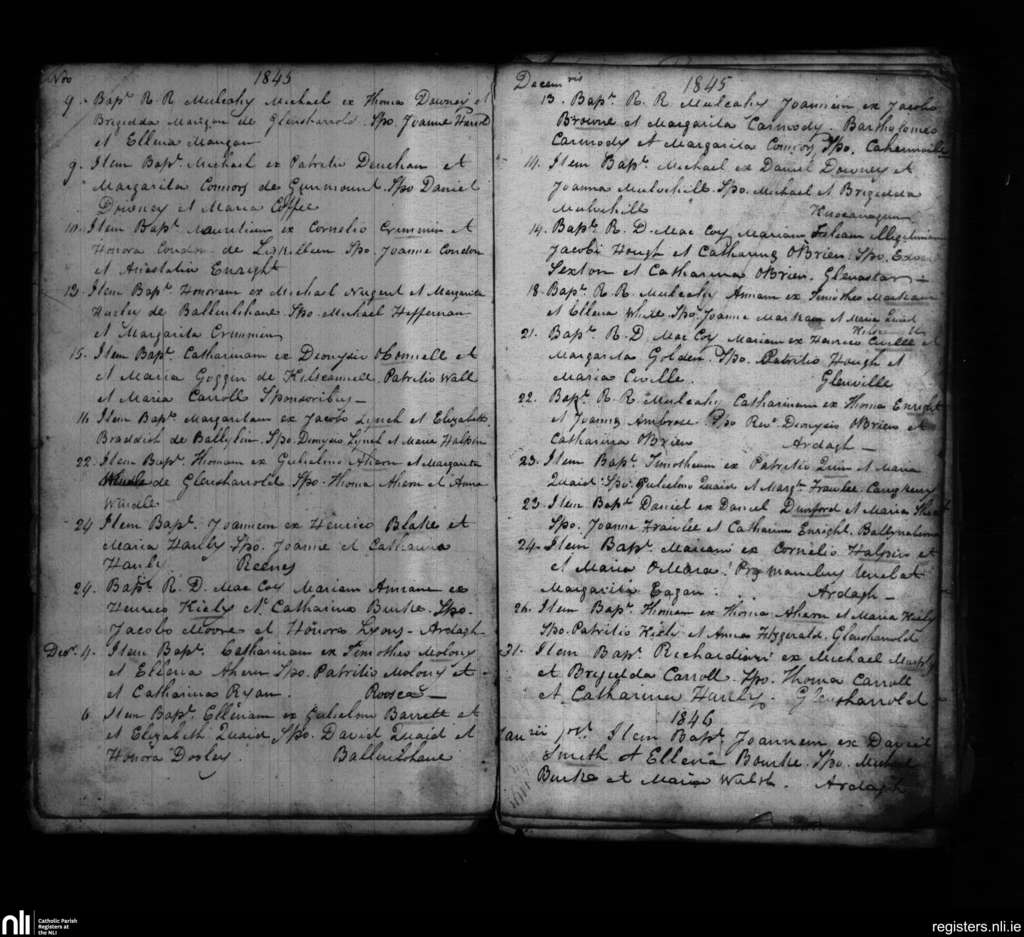 Nov 1845
9. Bapt. R. R Mulcahy Michael ex Thoma Downey et
Brigedda Mangan de Glensharrold. Spo. Joanne
et Ellena Mangan
9. Item Bapt. Michael ex Patritio Denehan et
Margarita Connors de Gunmount. Spo Daniel
Downey et Maria Coffee
10. Item Bapt. Mauritium ex Cornelio Crimmin et
Honora Condon de Spo. Joanne Condon
et Anastatia Enright
13. Item Bapt. Honoram ex Michael Nugent et Margarita
de Ballinlihane. Spo. Michael Heffernan
et Margarita Crimmin
15. Item Bapt. Catharinam ex Dionysio OConnell et
et Maria Goggin de Kilscannell. Patritio Wall
et Maria Carroll Sponsoribus
16. Item Bapt. Margaritam ex Jacobo Lynch et Elizabeth
de Spo. Dionysio Lynch et Maria Halpin
22. Item Bapt. Thomam ex Gulielmo Ahern et Margarita
Windle de Glensharrold. Spo. Thoma Ahern et Anna
Windle
24 Item Bapt. Joannem ex Henrico Blake et
Maria Hanly Spo. Joanne et Catharina
Hanly. Reenes
24. Bapt. R. D. Mac Coy Mariam Annam ex
Henrico Kiely et Catharina Burke. Spo.
Jacobo Moore et Honora Lyons - Ardagh
Decr. 4. Item Bapt. Catharinam ex Timotheo Molony
et Ellena Ahern Spo. Patritio Molony et
et Catharina Ryan. Rooska
6. Item Bapt. Ellenam ex Gulielmo Barrett et
et Elizabeth Quaid. Spo. David Quaid et
Honora Dorley. Ballinlihane
Decembris 1845
13. Bapt. R. R Mulcahy Joannem ex Jacobo
Browne et Margarita Carmody. Bartholomeo
Carmody et Margarita Connors Spo. Cahermoile
14. Item Bapt. Michael ex Daniel Downey et
Joanna Mulvihill. Spo. Michael et Brigedda
Mulvihill
14. Bapt. R. D. Mac Coy Mariam filiam illegitimam
Jacobi Hough et Catharina OBrien. Spo.
Sexton et Catharina OBrien. Glenastar
18. Bapt. R. R. Mulcahy Annam ex Timotheo Markam
et Ellena Windle. Spo. Joanne Markam et Maria Quaid
21. Bapt. R. D. Mac Coy Mariam ex Henrico Civille et
Margarita Golden. Spo. Patritio Hough et
Maria Civille. Glenville
22. Bapt. R. R Mulcahy Catharinam ex Thoma Enright
et Joanna Ambrose Spo Revd Dionysio OBrien et
Catharina OBrien Ardagh
23. Item Bapt. Timotheum ex Patritio Quin et Maria
Quaid. Spo. Gulielmo Quaid et Margta Frawlee.
23. Item Bapt. Daniel ex Daniel Dunford et Maria
Spo. Joanne Frawlee et Catharina Enright.
24. Item Bapt. Mariam ex Cornelio Halpin et
et Maria OMara.
Margarita Eagan. Ardagh
26. Item Bapt. Thomam ex Thoma Ahern et Maria Kiely
Spo. Patritio Kiely et Anna Fitzgerald. Glensharrold
31. Item Bapt. Richardum ex Michael Murphy
et Brigedda Carroll. Spo. Thoma Carroll
et Catharina Hanly. Glensharrold
1846
Januarii Item Bapt. Joannem ex David
Smith et Ellena Bourke. Spo. Michael
Burke et Maria Walsh. Ardagh
nli Catholic Parish
Registers at
the NLI
registers.nli.ie